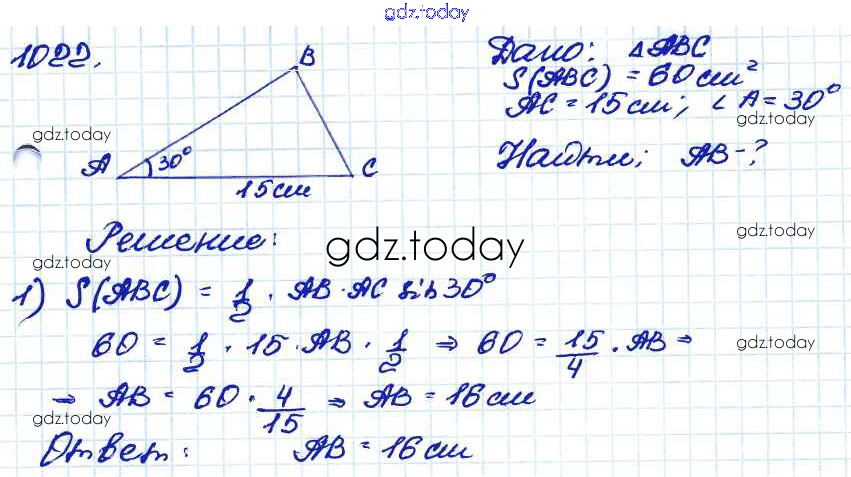 gdz.today
1022.
B
A
30°
15 см
C
Дано: △ABC
S(ABC) = 60 см²
AC = 15 см; ∠A = 30°
Найти; AB - ?
gdz.today
gdz.today
Решение:
gdz.today
gdz.today
gdz.today
1) S(ABC) = 1/2 · AB · AC sin 30°
60 = 1/2 · 15 · AB · 1/2 ⇒ 60 = 15/4 · AB ⇒
gdz.today
⇒ AB = 60 · 4/15 ⇒ AB = 16 см
gdz.today
Ответ: AB = 16 см